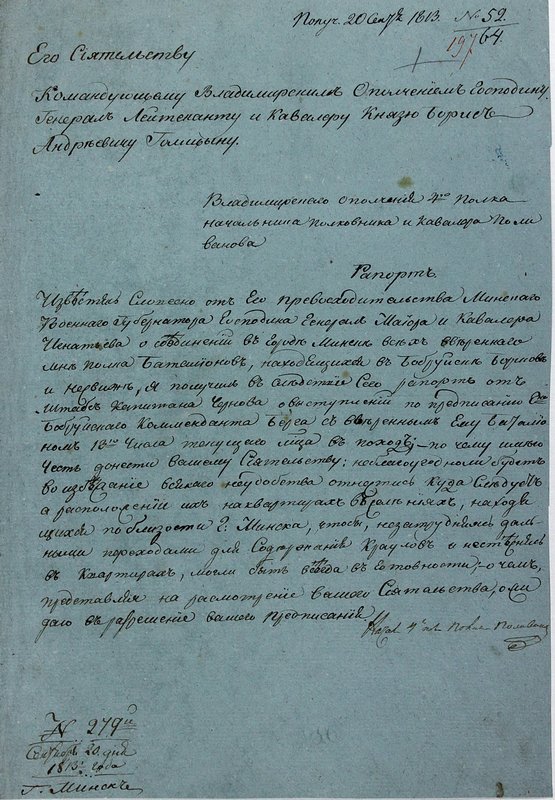 Получ. 20 Сентбр 1813. № 52.
197 64.
Его Сіятельству
Командующему Владимирскимъ Ополченіемъ Господину
Генералъ Лейтенанту и Кавалеру Князю Борисъ
Андрѣевичу Голицыну.
Владимирскаго ополченія 4го Полка
начальника полковника и Кавалера Поли
ванова
Рапортъ.
Извѣстясь словесно отъ Его превосходительства Минскаго
Военнаго Губернатора Господина Генералъ Маіора и Кавалера
Игнатьева о соединеніи въ городѣ Минскѣ всѣхъ ввѣреннаго
мнѣ полка Баталіоновъ, находящихся въ Бобруйскѣ Борисовѣ
и Несвижѣ, я получилъ въ слѣдствіе сего рапортъ отъ
Штабсъ Капитана Чернова о выступленіи по предписанію
Бобруйскаго Комменданта Берга съ ввѣреннымъ ему Баталіо
номъ 13го числа текущего мца въ походъ; — по чему имѣю
честь донести Вашему Сіятельству: не благоугодноли будетъ
во избѣжаніе всякаго неудобства относительно
а расположеніи ихъ на квартирахъ въ селѣніяхъ, находя
щихся по близости г. Минска, чтобы, незатрудняясь даль
ными переходами для содержанія Карауловъ и нестѣсняясь
въ Квартирахъ, могли быть всегда въ готовности; — о чемъ,
представляя на расмотреніе Вашего Сіятельства, ожи
даю въ разрешеніе вашего предписанія
4го Полка Поливановъ
№ 279й
Сентябрь 20 дня
1813го года
г. Минскъ